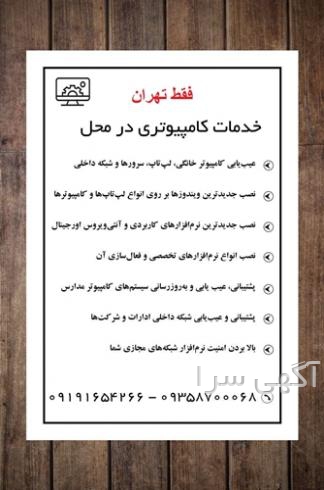 فقط تهران
خدمات کامپیوتری در محل
عیب‌یابی کامپیوتر خانگی، لپ‌تاپ، سرورها و شبکه داخلی
نصب جدیدترین ویندوزها بر روی انواع لپ‌تاپ‌ها و کامپیوترها
نصب جدیدترین نرم‌افزارهای کاربردی و آنتی‌ویروس اورجینال
نصب انواع نرم‌افزارهای تخصصی و فعال‌سازی آن
پشتیبانی، عیب یابی و به‌روزرسانی سیستم‌های کامپیوتر مدارس
پشتیبانی و عیب‌یابی شبکه داخلی ادارات و شرکت‌ها
بالا بردن امنیت نرم‌افزار شبکه‌های مجازی شما
آگهی سرا
۰۹۱۹۱۶۵۴۲۶۶ - ۰۹۳۵۸۷۰۰۰۶۸